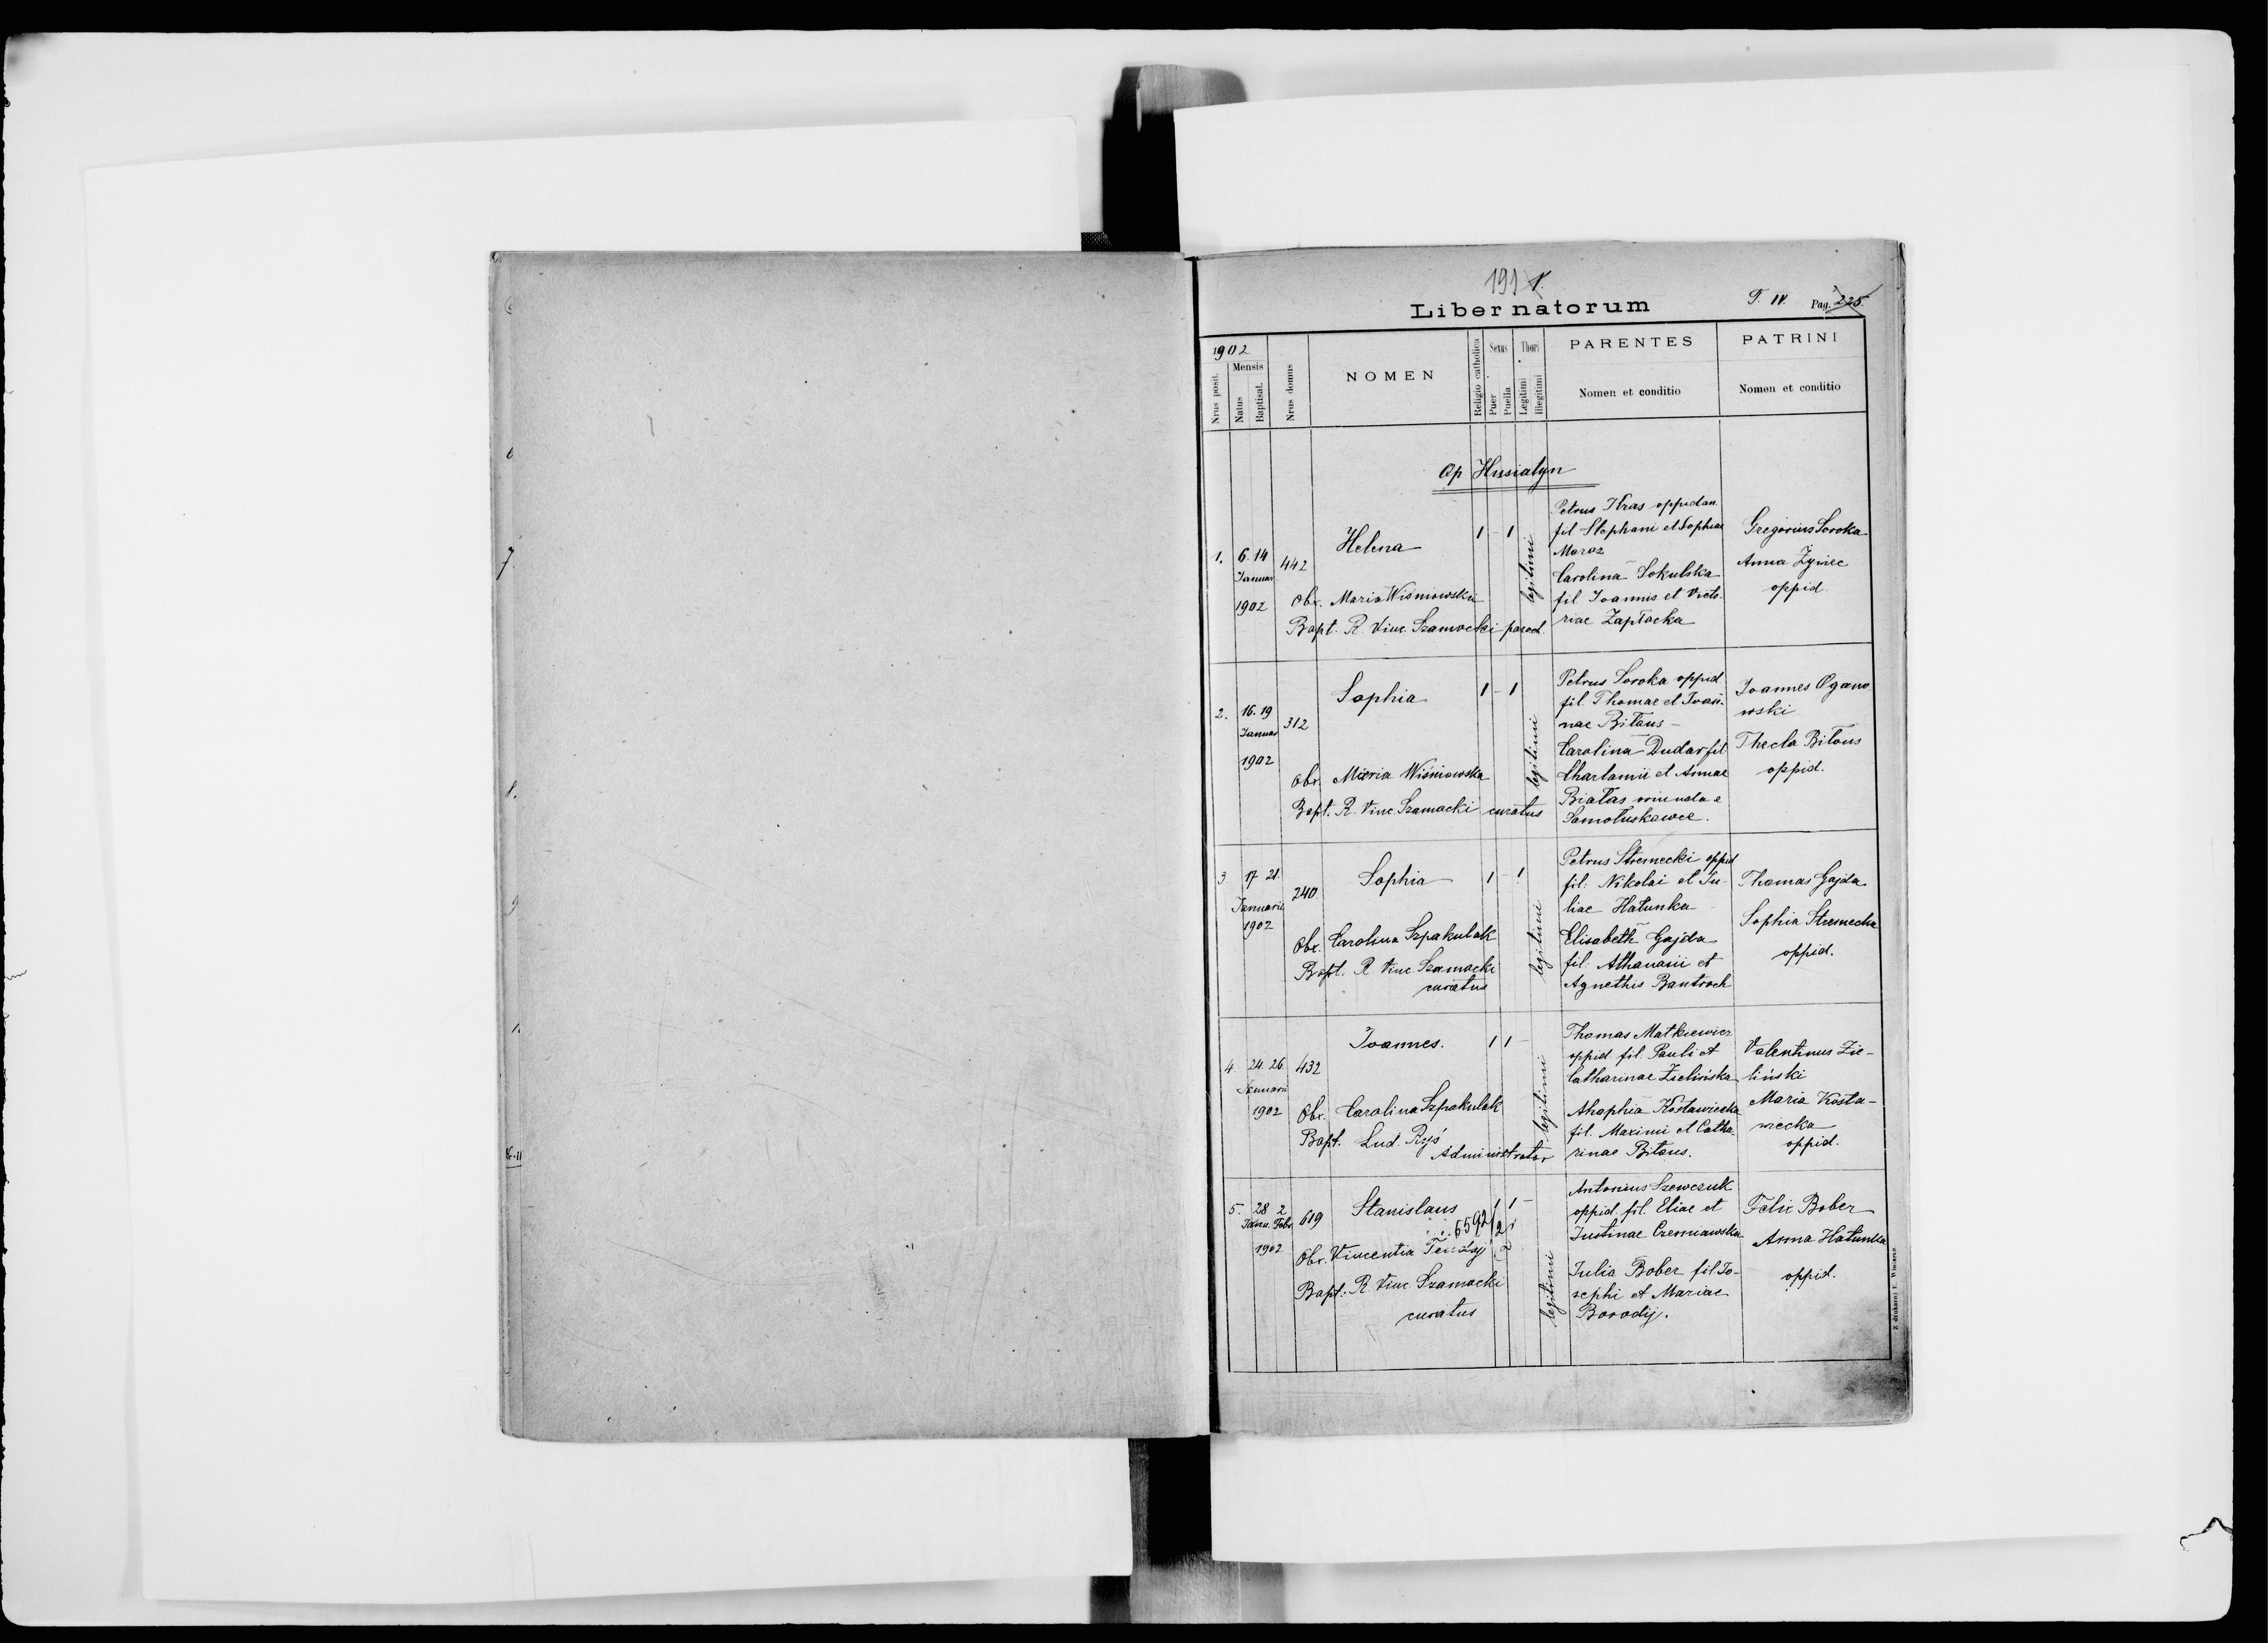 191
Liber natorum
T. IV. Pag. 225.
1902
Mensis
Nrus posit.
Natus
Baptisat.
Nrus domus
NOMEN
Religio catholica
Sexus
Puer
Puella
Thori
Legitimi
Illegitimi
PARENTES
Nomen et conditio
PATRINI
Nomen et conditio
Op Husiatyn
1.
6. 14
Januar
1902
442
Helena
1 - 1
legitimi
Obs. Maria Wiśniowska
Bapt. R. Vinc. Szamocki paroch.
Petrus Kras oppidan
fil Stephani et Sophiae
Moroz
Carolina Sokulska
fil Joannis et Victo-
riae Zapłacka
Gregorius Soroka
Anna Żyniec
oppid.
2.
16. 19
Januar
1902
312
Sophia
1 - 1
legitimi
Obs. Maria Wiśniowska
Bapt. R. Vinc. Szamocki curatus
Petrus Soroka oppid
fil. Thomae et Joan-
nae Biłous
Carolina Dudar fil
Charlamii et Annae
Białas oriunda e
Samołuskowce.
Joannes Ogano
wski
Thecla Biłous
oppid.
3.
17 21.
Januarii
1902
240
Sophia
1 - 1
legitimi
Obs. Carolina Szpakulak
Bapt. R. Vinc. Szamocki
curatus
Petrus Stremecki oppid
fil: Nikolai et Ju-
liae Hałunka
Elisabeth Gajda
fil: Athanasii et
Agnethis Bantroch
Thomas Gajda
Sophia Stremecka
oppid.
4.
24. 26.
Januarii
1902
432
Joannes.
1 1 -
legitimi
Obs. Carolina Szpakulak
Bapt. Lud. Ryś
Administrator
Thomas Matkiewicz
oppid. fil. Pauli et
Catharinae Zielińska
Ahaphia Kostawiecka
fil. Maximi et Catha-
rinae Biłous.
Valentinus Zie-
liński
Maria Kosta-
wiecka
oppid.
5.
28 2
Janu. Febr.
1902
619
Stanislaus
1 1 -
legitimi
6592/2
Obs. Vincentia
Bapt. R. Vinc. Szamocki
curatus
Antonius Szewczuk
oppid. fil. Eliae et
Justinae Czerniawska
Julia Bober fil Jo-
sephi et Mariae
Borodij.
Felix Bober
Anna Hałunka
oppid.
Z drukarni E. Winiarza